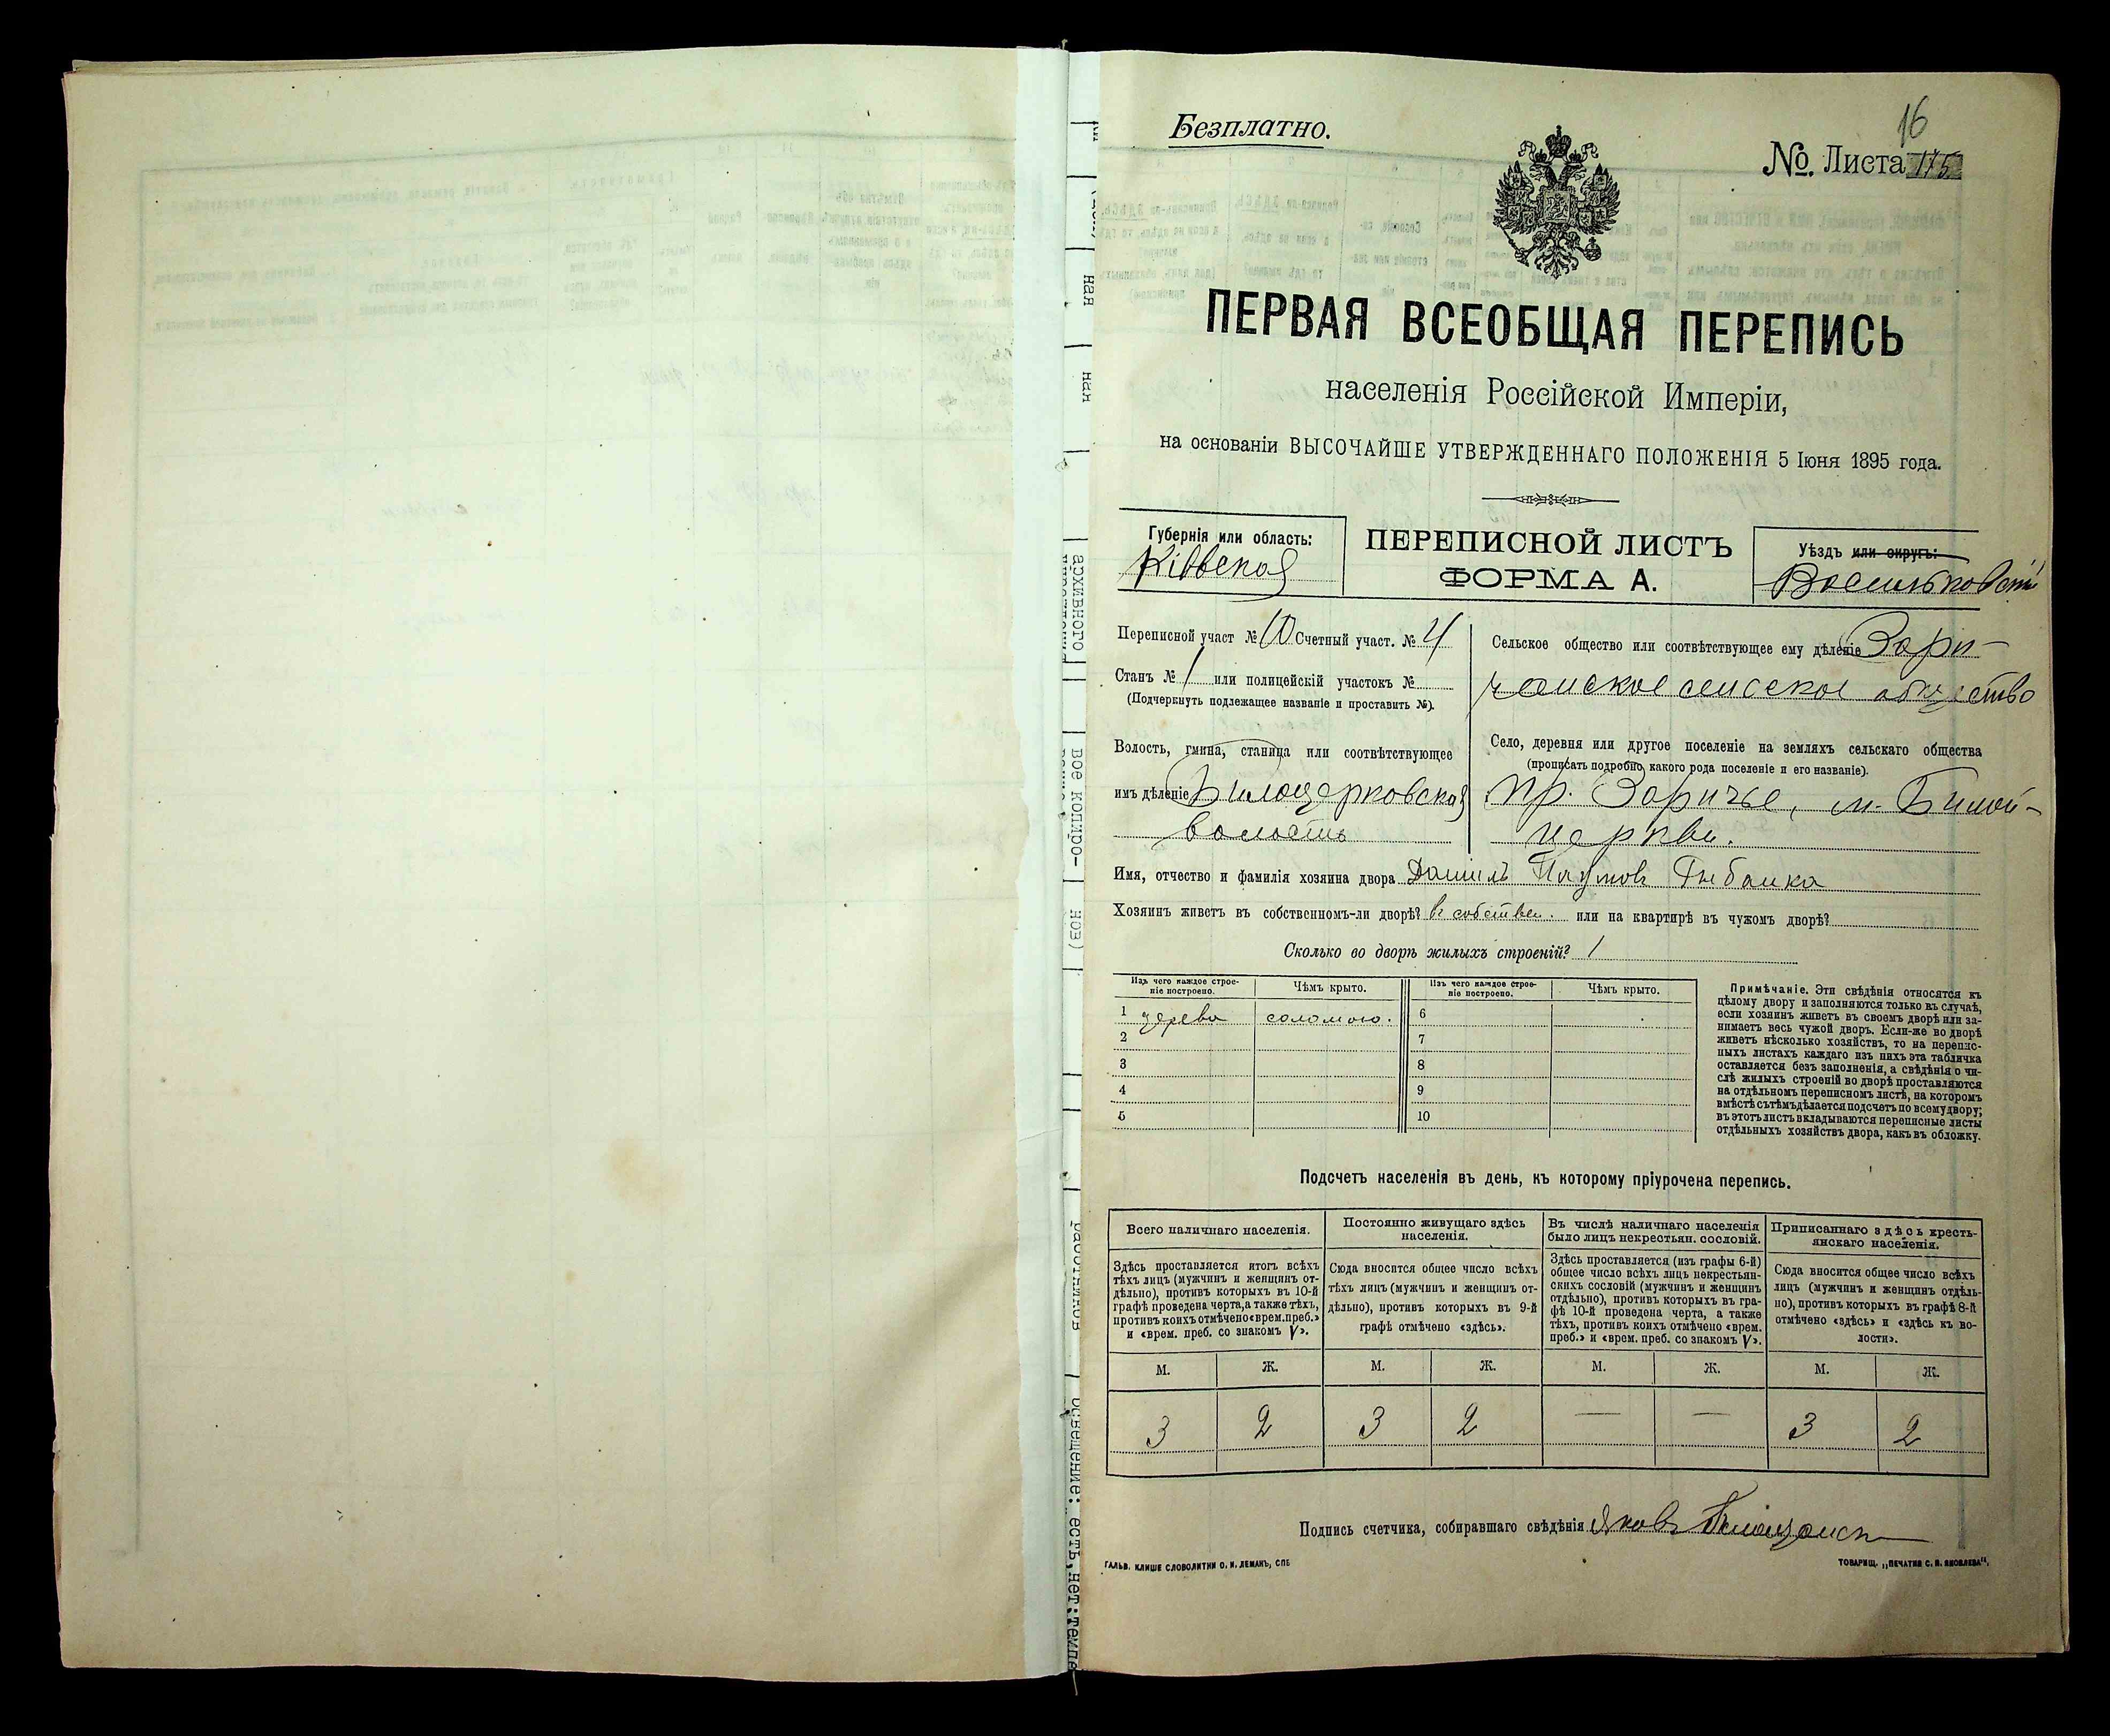 Безплатно.
16
№. Листа 115
ПЕРВАЯ ВСЕОБЩАЯ ПЕРЕПИСЬ
населенія Россійской Имперіи,
на основаніи ВЫСОЧАЙШЕ УТВЕРЖДЕННАГО ПОЛОЖЕНІЯ 5 Іюня 1895 года.
Губернія или область:
Кіевская
ПЕРЕПИСНОЙ ЛИСТЪ
ФОРМА А.
Уѣздъ или округъ:
Васильковскій
Переписной участ № 10 Счетный участ. № 4
Станъ № 1 или полицейскій участокъ №
(Подчеркнуть подлежащее названіе и проставить №).
Волость, гмина, станица или соотвѣтствующее
имъ дѣленіе Билоцерковская
волость
Сельское общество или соотвѣтствующее ему дѣленіе Зари-
чанское сельское общество
Село, деревня или другое поселеніе на земляхъ сельскаго общества
(прописать подробно, какого рода поселеніе и его названіе).
пр. Заричье, м. Билой-
церкви.
Имя, отчество и фамилія хозяина двора Даниилъ Наумовъ
Хозяинъ живетъ въ собственномъ-ли дворѣ? въ собствен. или на квартирѣ въ чужомъ дворѣ?
Сколько во дворѣ жилыхъ строеній? 1
Изъ чего каждое строе-
ніе построено.
Чѣмъ крыто.
Изъ чего каждое строе-
ніе построено.
Чѣмъ крыто.
1 дерева соломою. 6
2 7
3 8
4 9
5 10
Примѣчаніе. Эти свѣдѣнія относятся къ
цѣлому двору и заполняются только въ случаѣ,
если хозяинъ живетъ въ своемъ дворѣ или за-
нимаетъ весь чужой дворъ. Если-же во дворѣ
живетъ нѣсколько хозяйствъ, то на перепис-
ныхъ листахъ каждаго изъ нихъ эта табличка
оставляется безъ заполненія, а свѣдѣнія о чи-
слѣ жилыхъ строеній во дворѣ проставляются
на отдѣльномъ переписномъ листѣ, на которомъ
вмѣстѣ съ тѣмъ дѣлается подсчетъ по всему двору;
въ этотъ листъ вкладываются переписные листы
отдѣльныхъ хозяйствъ двора, какъ въ обложку.
Подсчетъ населенія въ день, къ которому пріурочена перепись.
Всего наличнаго населенія.
Здѣсь проставляется итогъ всѣхъ
тѣхъ лицъ (мужчинъ и женщинъ от-
дѣльно), противъ которыхъ въ 10-й
графѣ проведена черта, а также тѣхъ,
противъ коихъ отмѣчено «врем. преб.»
и «врем. преб. со знакомъ V».
Постоянно живущаго здѣсь
населенія.
Сюда вносится общее число всѣхъ
тѣхъ лицъ (мужчинъ и женщинъ от-
дѣльно), противъ которыхъ въ 9-й
графѣ отмѣчено «здѣсь».
Въ числѣ наличнаго населенія
было лицъ некрестьян. сословій.
Здѣсь проставляется (изъ графы 6-й)
общее число всѣхъ лицъ некрестьян-
скихъ сословій (мужчинъ и женщинъ
отдѣльно), противъ которыхъ въ гра-
фѣ 10-й проведена черта, а также
тѣхъ, противъ коихъ отмѣчено «врем.
преб.» и «врем. преб. со знакомъ V».
Приписаннаго здѣсь кресть-
янскаго населенія.
Сюда вносится общее число всѣхъ
лицъ (мужчинъ и женщинъ отдѣль-
но), противъ которыхъ въ графѣ 8-й
отмѣчено «здѣсь» и «здѣсь къ во-
лости».
М. Ж. М. Ж. М. Ж. М. Ж.
3 2 3 2 — — 3 2
Подпись счетчика, собиравшаго свѣдѣнія Яковъ
ГАЛЬВ. КЛИШЕ СЛОВОЛИТНИ О. И. ЛЕМАНЪ, СПБ
ТОВАРИЩ. „ПЕЧАТНЯ С. П. ЯКОВЛЕВА“.
архивного
вое копиро-
ноз)
ная
ная
работников
освещение: есть, нет: темпе